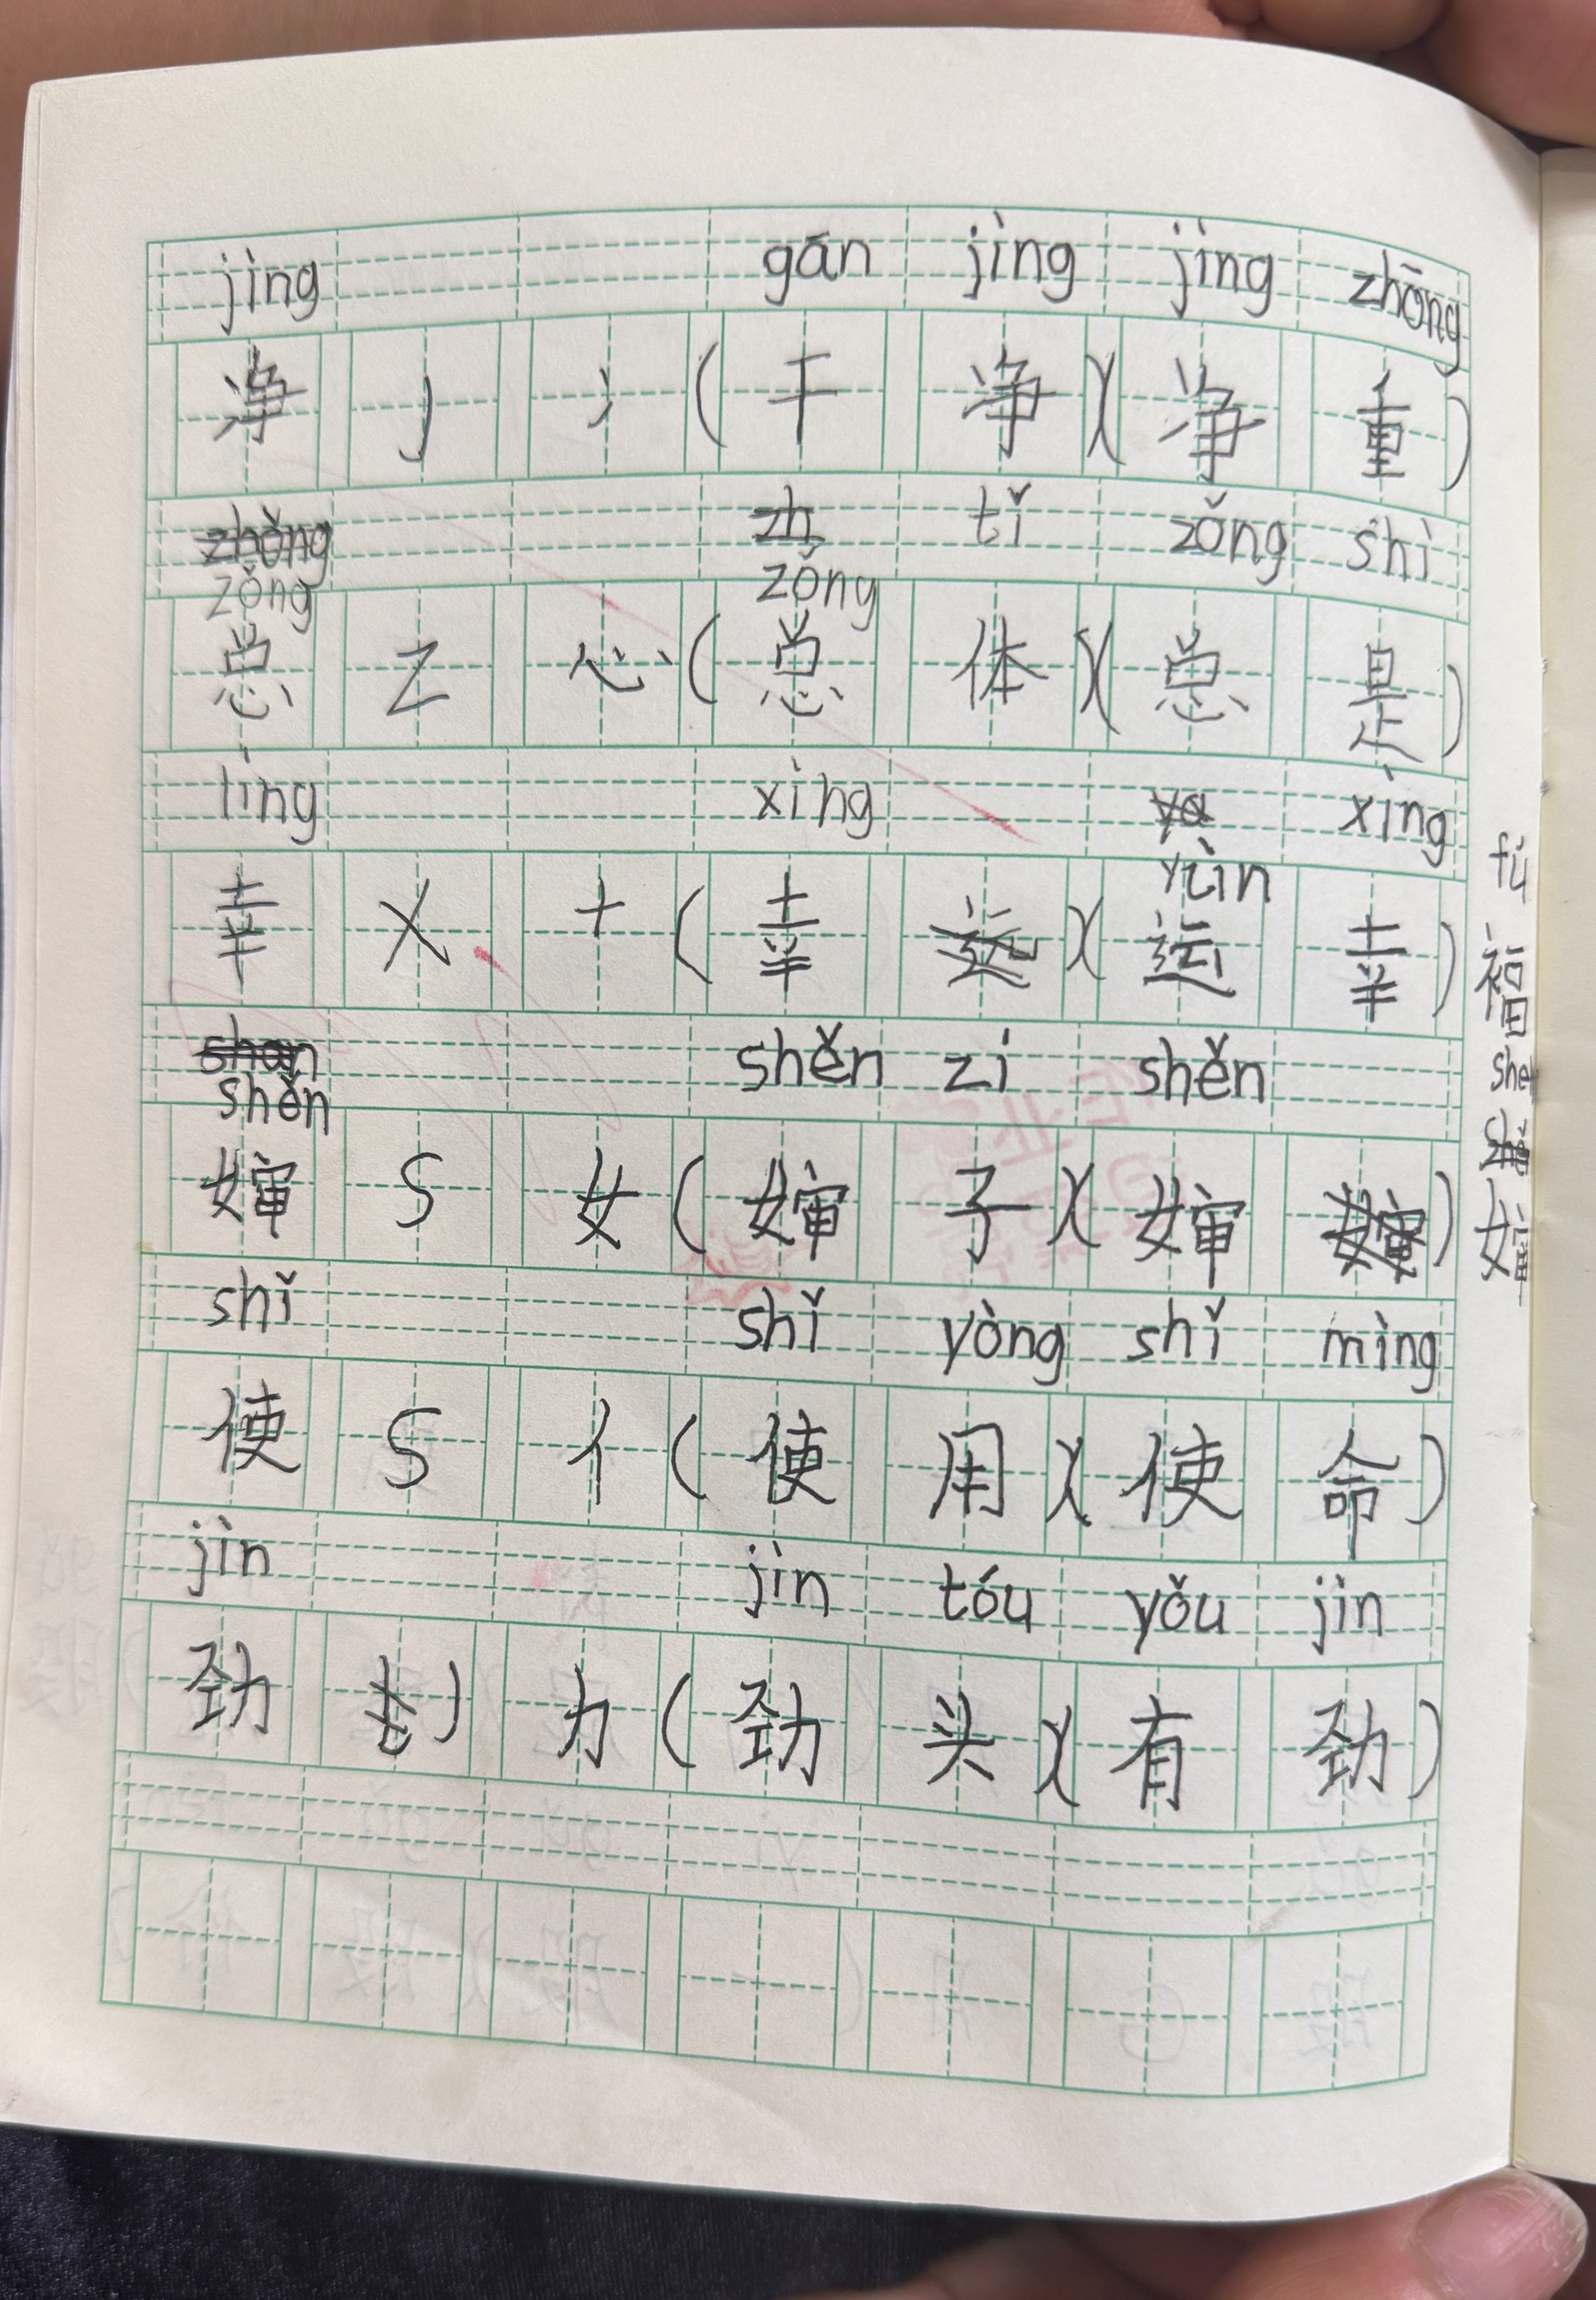 jìng gān jìng jìng zhòng
净 J 冫 ( 干 净 )( 净 重 )
zǒng zǒng tǐ zǒng shì
总 Z 心 ( 总 体 )( 总 是 )
lìng xìng yùn xìng
幸 X 十 ( 幸 )( 运 幸 )
fú
福
shěn shěn zi shěn
婶 S 女 ( 婶 子 )( 婶 )
婶
shǐ shǐ yòng shǐ mìng
使 S 亻 ( 使 用 )( 使 命 )
jìn jìn tóu yǒu jìn
劲 J 力 ( 劲 头 )( 有 劲 )